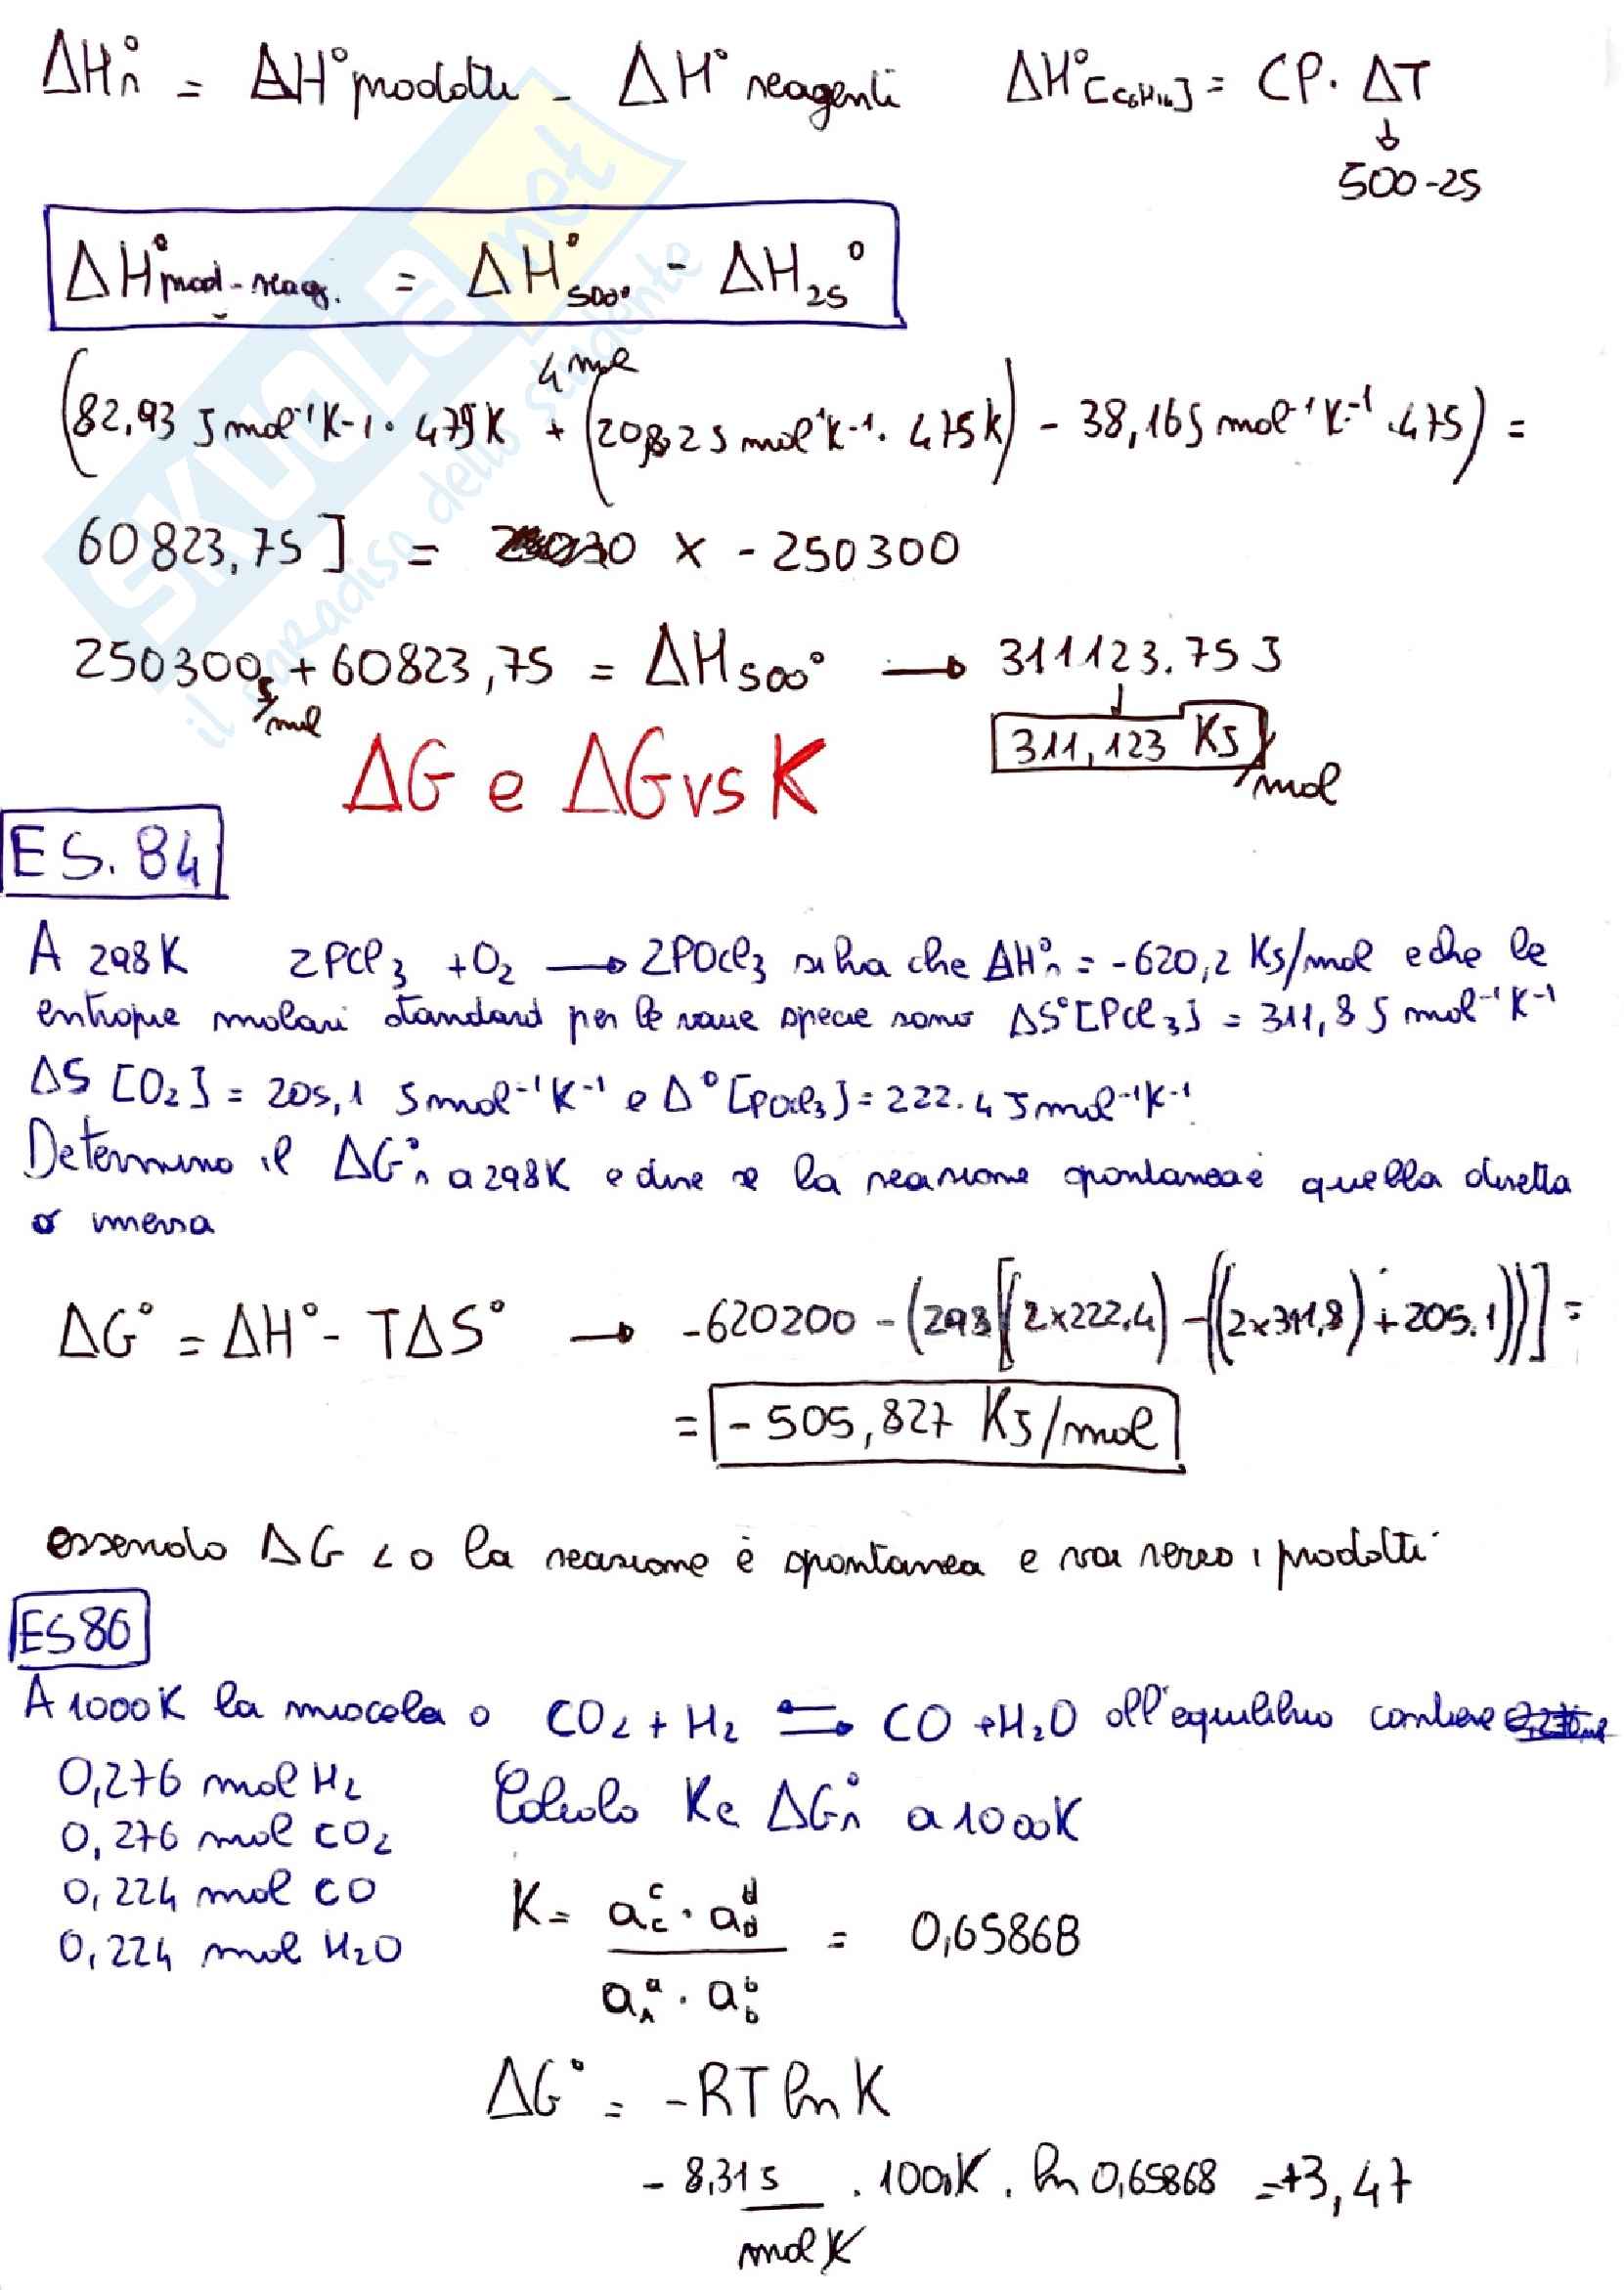 ΔH°r = ΔH° prodotti - ΔH° reagenti ΔH°[C6H14] = CP · ΔT
↓
500-25
ΔH°prod-reag. = ΔH°500° - ΔH25°
4 mol
(82,93 J mol⁻¹K-1 · 475K + (208,2 J mol⁻¹K⁻¹ · 475K) - 38,16 J mol⁻¹K⁻¹ · 475) =
60823,75 ] = x - 250300
250300 J/mol + 60823,75 = ΔH500° → 311123.75 J
↓
311,123 KJ/mol
ΔG e ΔG vs K
ES. 84
A 298K 2PCl3 + O2 → 2POCl3 si ha che ΔH°r = -620,2 KJ/mol e che le
entropie molari standard per le varie specie sono ΔS°[PCl3] = 311,8 J mol⁻¹K⁻¹
ΔS [O2] = 205,1 J mol⁻¹K⁻¹ e Δ°[POCl3] = 222.4 J mol⁻¹K⁻¹
Determino il ΔG°r a 298K e dire se la reazione spontanea è quella diretta
o inversa
ΔG° = ΔH° - TΔS° → -620200 - (298[(2x222,4) - ((2x311,8) + 205.1))] =
= -505,827 KJ/mol
essendo ΔG < 0 la reazione è spontanea e va verso i prodotti
ES 86
A 1000K la miscela o CO2 + H2 ⇌ CO + H2O all'equilibrio contiene
0,276 mol H2
0,276 mol CO2
0,224 mol CO
0,224 mol H2O
Calcolo K e ΔG°r a 1000K
K = (a_c^c · a_d^d) / (a_A^a · a_b^b) = 0,65868
ΔG° = -RT ln K
- 8,31 J / mol K · 1000K · ln 0,65868 = +3,47
SKUOLA.net
il paradiso dello studente